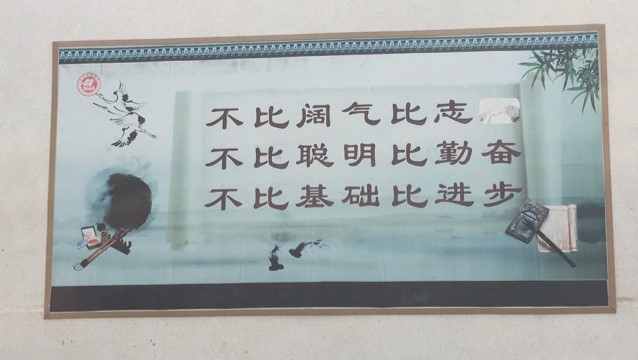 不比阔气比志
不比聪明比勤奋
不比基础比进步